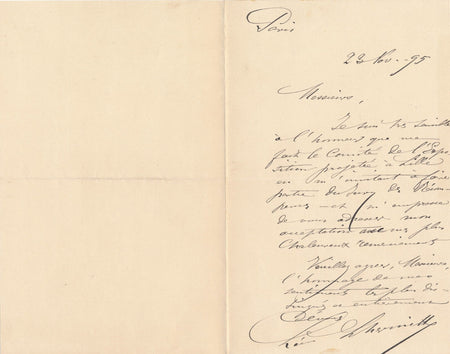 Paris
23 Nov. -95
Messieurs,
Je suis très sensible
à l'honneur que me
fait le Comité de l'Expo
sition projetée à Lille
en m'invitant à faire
partie du Jury des Récom
penses - et m'empresse
de vous adresser mon
acceptation avec mes plus
chaleureux remerciements
Veuillez agréer, Messieurs,
l'hommage de mes
sentiments les plus dis
tingués et entièrement
Dévoués
Léon Lhermitte